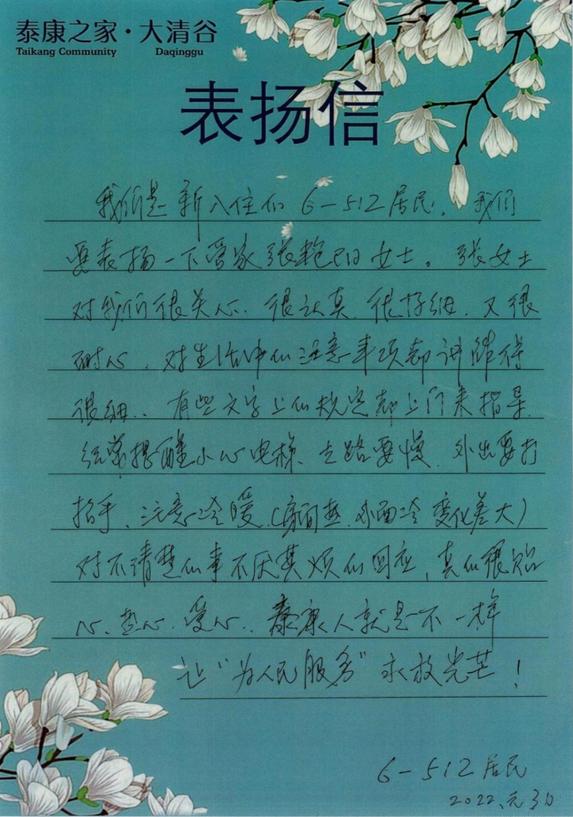 泰康之家·大清谷
Taikang Community Daqinggu
表扬信
我们是新入住的6-512居民，我们
要表扬一下管家张艳阳女士。张女士
对我们很关心、很认真、很仔细、又很
耐心，对生活中的注意事项都讲解得
很细.、有些文字上的规定都上门来指导
经常提醒小心电梯、走路要慢、外出要打
招手、注意冷暖、(房间热、外面冷 变化差大)
对不清楚的事不厌其烦的回应，真的很贴
心、热心、爱心.、泰康人就是不一样
让“为人民服务”永放光芒！
6-512居民
2022.元.